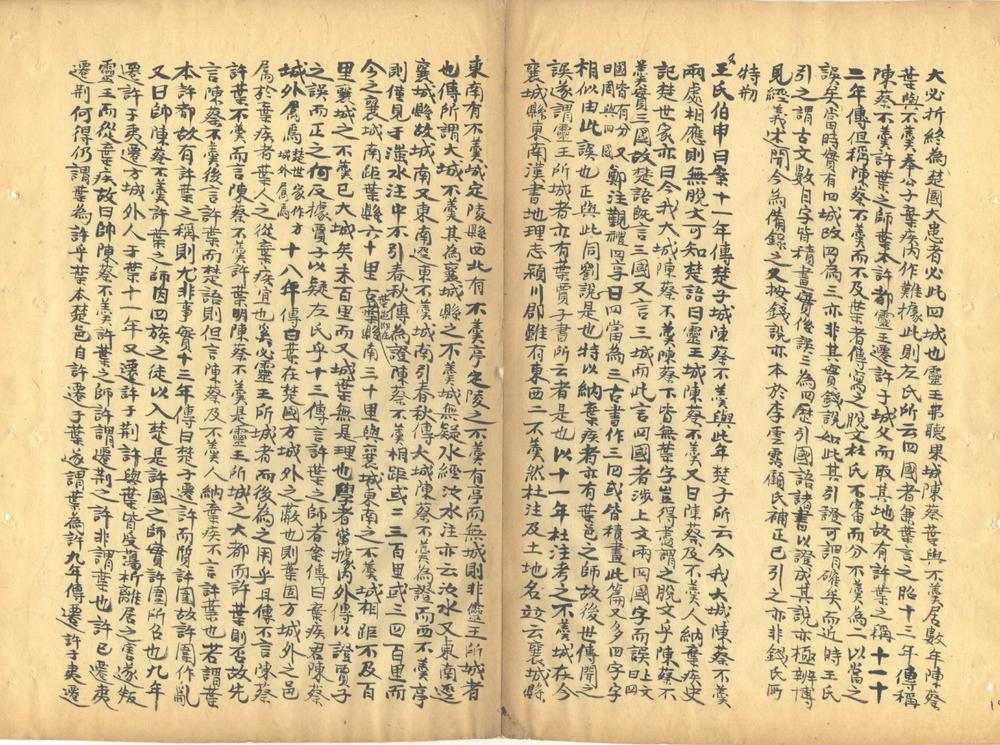 大必折終為楚國大患者必此四城也靈王弗聽果城陳蔡葉與不羹居數年陳蔡
葉與不羹奉公子葉疾內作難據此則左氏所云四國者兼葉言之昭十三年傳稱
陳蔡不羹許葉之師葉本許都靈王遷許于城父而取其地故有許葉之稱十一十
二年傳但稱陳蔡不羹而不及葉者傳寫之脫文杜氏不審而分不羹為二以當之
誤矣當時實有四城改四為三亦非其實錢說如此其引證可謂確矣而近時王氏
引之謂古文數目字皆積畫實後誤三為四歷引國語諸書以證成其說亦極辨博
見經義述聞今為備錄之又按錢說亦本於李雲霑顧氏補正已引之亦非錢氏所
特刱
王氏伯申曰案十一年傳楚子城陳蔡不羹與此年楚子所云今我大城陳蔡不羹
兩處相應則無脫文可知楚語曰靈王城陳蔡不羹又曰陳蔡及不羹人納葉疾史
記楚世家亦曰今我大城陳蔡不羹陳蔡下皆無葉字豈得盡謂之脫文乎陳蔡不
羹實三國故楚語既言三國又言三城而此言四國者涉上文兩四國字而誤上文曰四
國皆有分又曰四國與四國鄭注覲禮四享曰四當為三古書作三四或皆積畫此篇又多四字字
相似由此誤也正與此同劉說是也特以納葉疾者亦有葉邑之師故後世傳聞之
誤遂謂靈王所城者亦有葉賈子書所云者是也以十一年杜注考之不羹城在今
襄城縣東南漢書地理志潁川郡雖有東西二不羹然杜注及土地名竝云襄城縣
東南有不羹城定陵縣西北有不羹亭定陵之不羹有亭而無城則非靈王所城者
也傳所謂大城不羹其為襄城縣之不羹城無疑水經汝水注亦云汝水又東南逕
襄城縣故城南又東南逕東不羹城南引春秋傳大城陳蔡不羹為證而西不羹亭
則僅見于滍水注中不引春秋傳為證陳蔡不羹相距或二三百里或三四百里而
今之襄城南距葉縣六十里古葉縣南三十里與襄城東南之不羹城相距不及百
里襄城之不羹已大城矣未百里而又城葉無是理也學者當據內外傳以證賈子
之誤而正之何反據賈子以疑左氏乎十三傳言許葉之師者案傳曰葉疾君陳蔡
城外屬焉楚世家作方城外屬焉十八年傳曰葉在楚國方城外之蔽也則葉固方城外之邑
屬於葉疾者葉人之從葉疾宜也奚必靈王所城者而後為之用乎且傳不言陳蔡
許葉不羹而言陳蔡不羹許葉明陳蔡不羹是靈王所城之大都而許葉則否故先
言陳蔡不羹後言許葉而楚語則但言陳蔡及不羹人納葉疾不言許葉也若謂葉
本許都故有許葉之稱則尤非事實十三年傳曰楚子遷許而質許圍故許圍作亂
又曰帥陳蔡不羹許葉之師因四族之徒以入楚是許國之師實許圍所召也九年
遷許于夷遷方城外人于葉十一年又遷許于荆許與葉皆受蕩析離居之害遂叛
靈王而從葉疾故曰帥陳蔡不羹許葉之師許謂遷荆之許非謂葉也許已遷夷
遷荆何得仍謂葉為許乎葉本楚邑自許遷于葉遂謂葉為許九年傳遷許于夷遷